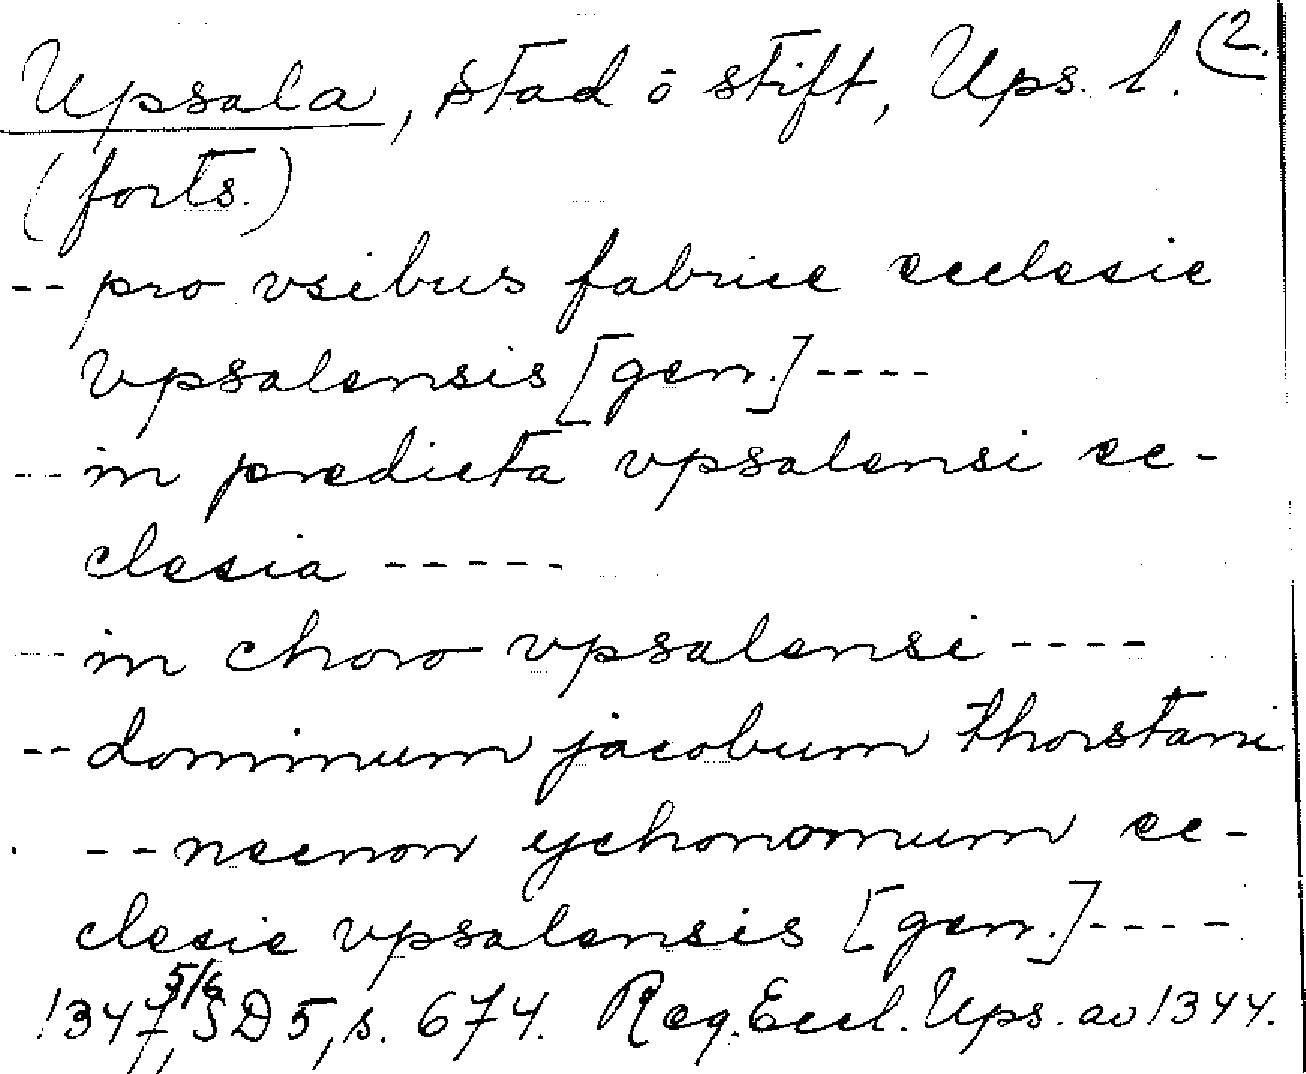 Upsala, stad o stift, Ups. l. (2.
(forts.)
-- pro vsibus fabrice ecclesie
vpsalensis [gen.] ----
-- in predicta vpsalensi ec-
clesia -----
-- in choro vpsalensi ----
-- dominum jacobum thorstani
-- necnon ychonomum ec-
clesie vpsalensis [gen.] ----
1347 5/6, SD 5, s. 674. Reg. Eccl. Ups. av 1344.